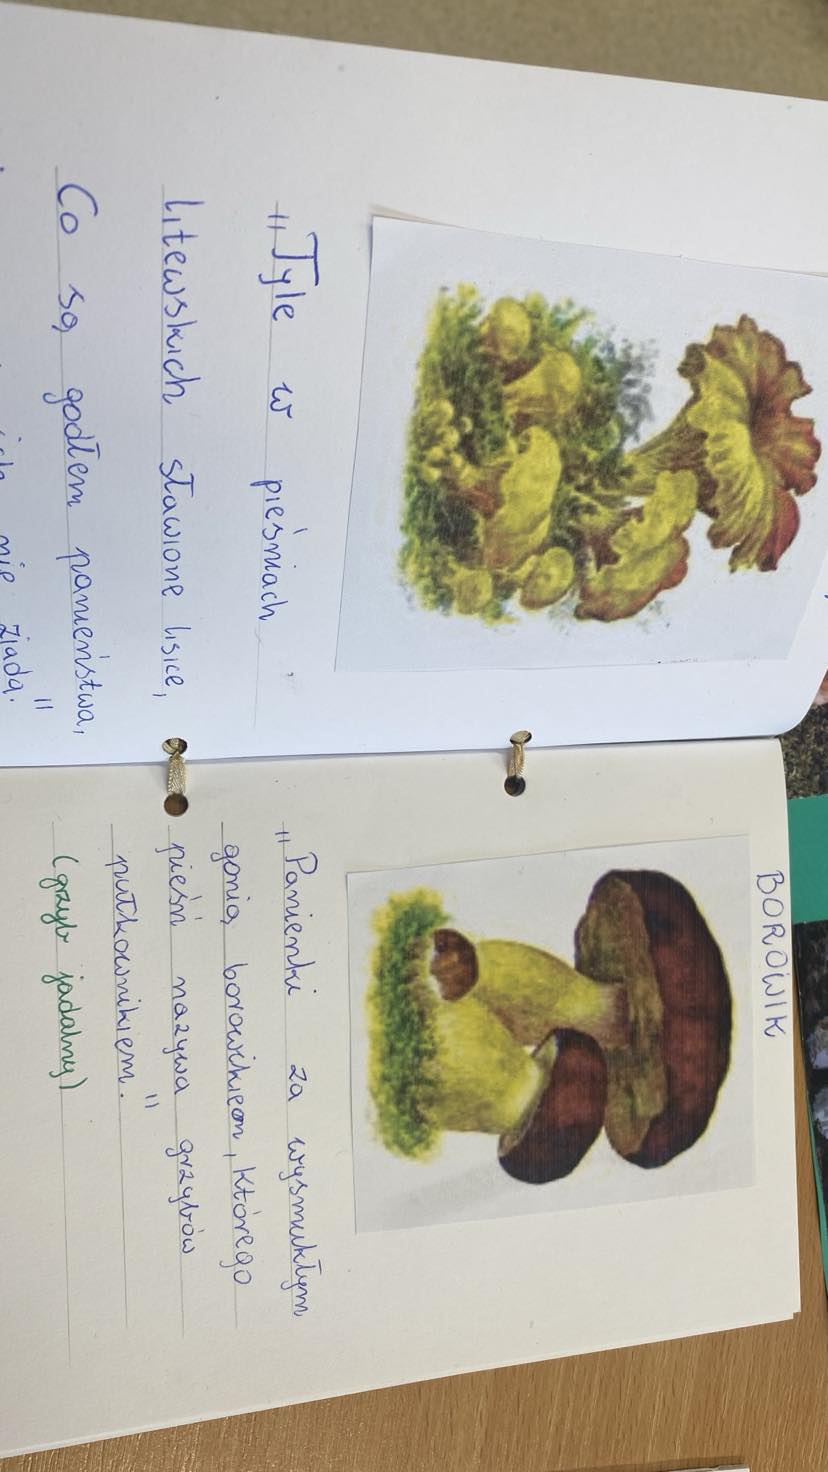 „Tyle w pieśniach
litewskich sławione lisice,
Co są godłem panieństwa,
ich nie zjada."
BOROWIK
„Panienki za wysmukłym
gonią borowikiem, którego
pieśń nazywa grzybów
pułkownikiem."
(grzyb jadalny)